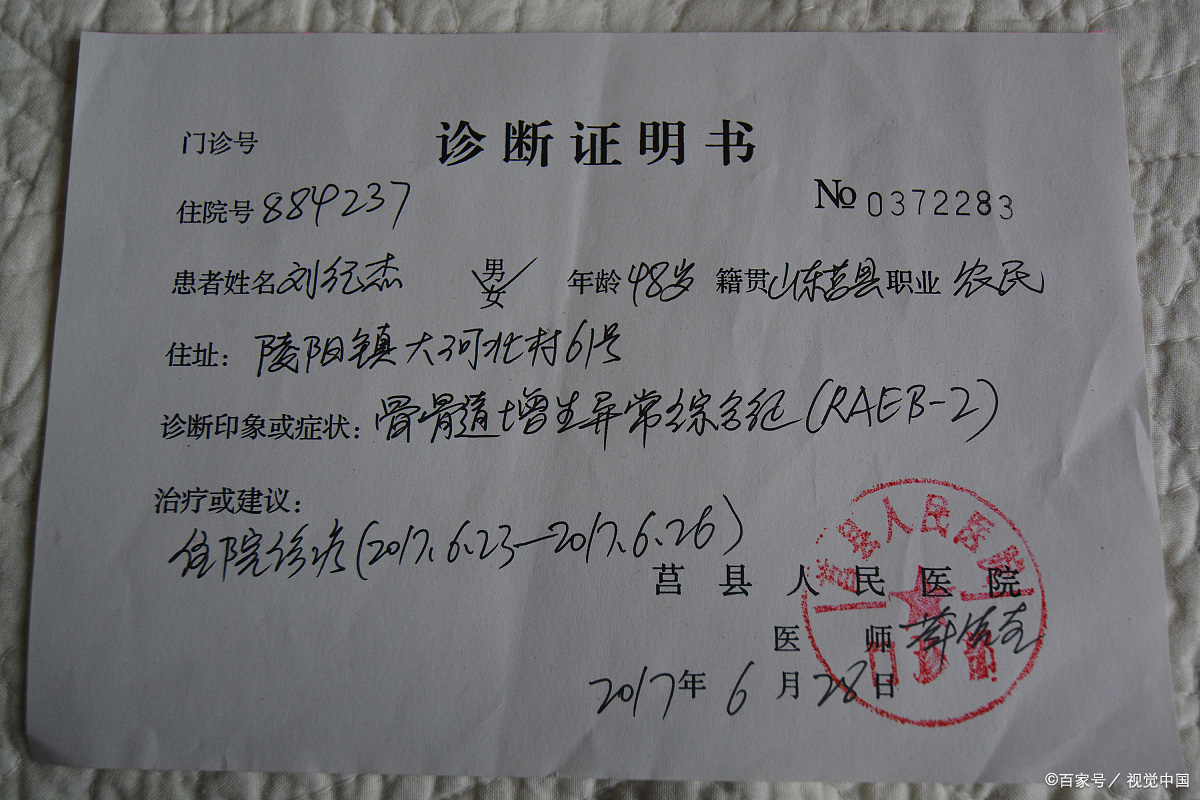 诊断证明书
门诊号
住院号 884237
№ 0372283
患者姓名 刘纪杰 男 女 年龄 48岁 籍贯 山东莒县 职业 农民
住址：陵阳镇大河北村61号
诊断印象或症状：骨髓增生异常综合征(RAEB-2)
治疗或建议：
住院诊疗(2017.6.23—2017.6.26)
莒县人民医院
莒县人民医院
医师
2017年6月28日
©百家号／视觉中国